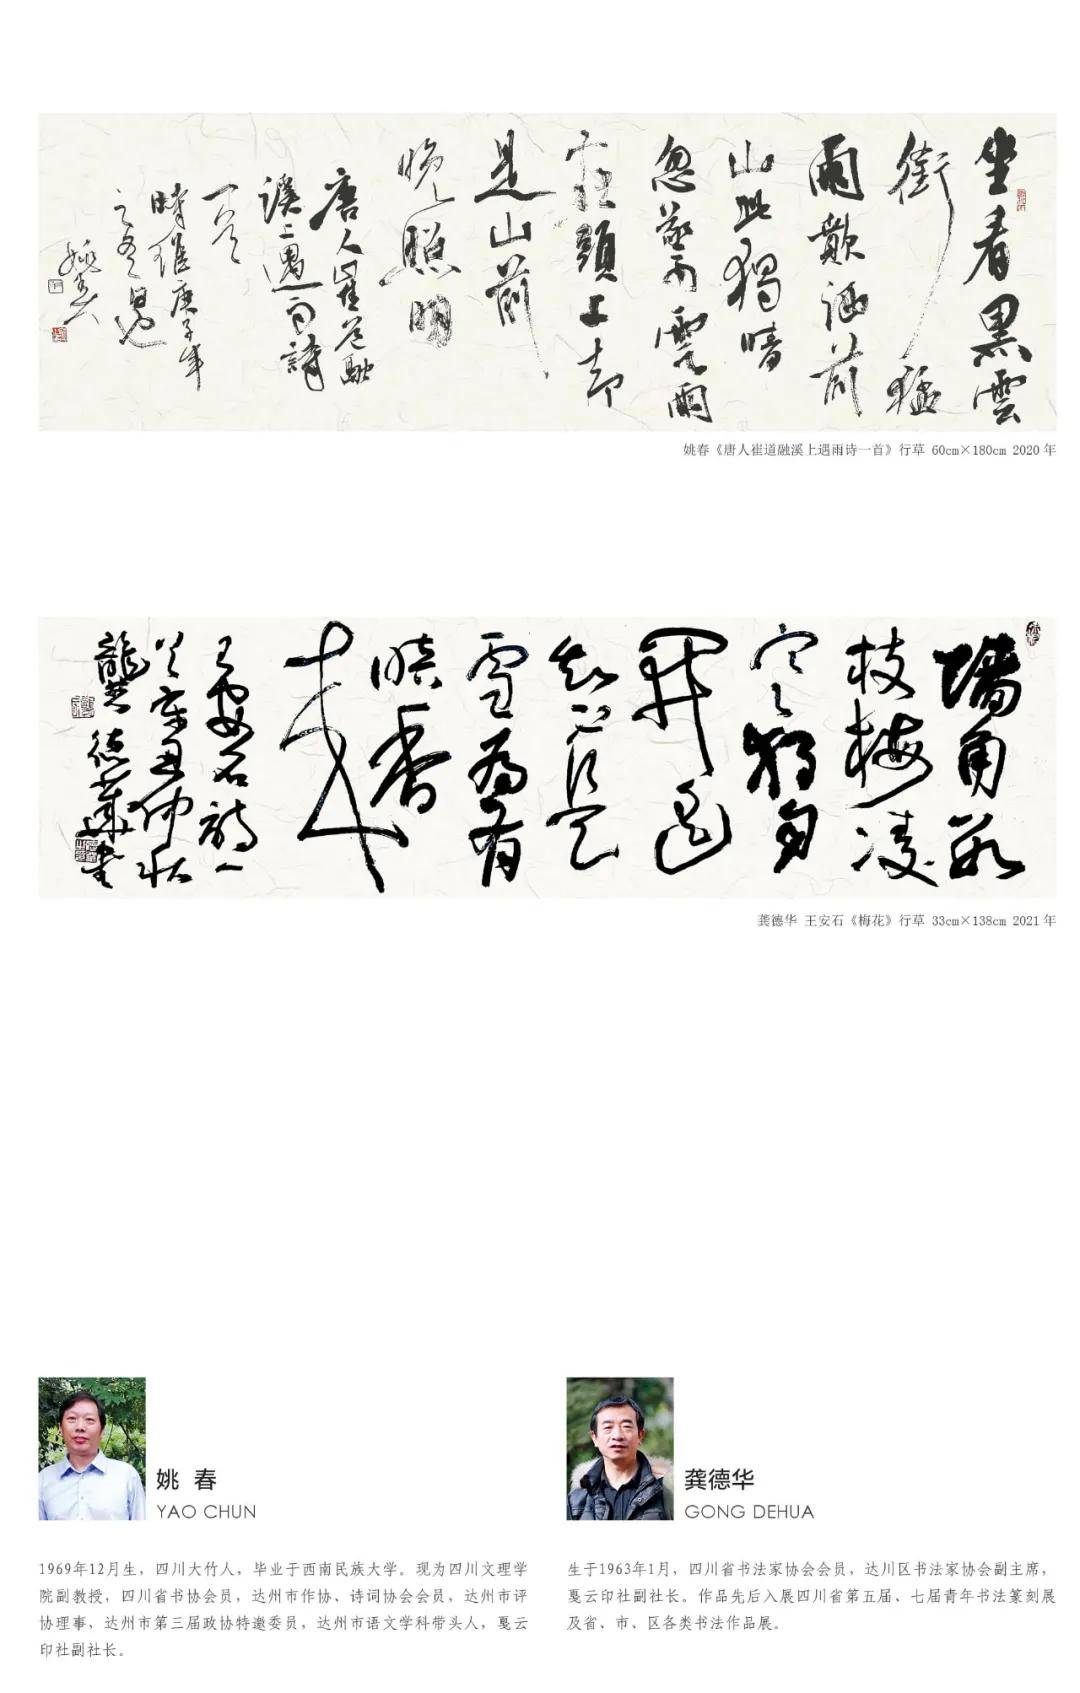 坐看黑雲
銜猛
雨歕洒前
山此獨晴
忽驚雲雨
在頭上却
是山前
晚照明
唐人崔道融
溪上遇雨詩
一首
時維庚子年
之冬月也
姚春
姚春《唐人崔道融溪上遇雨诗一首》行草 60cm×180cm 2020 年
墻角数
枝梅凌
寒獨自
開遥
知不是
雪為有
暗香
来
王安石詩一
首辛丑仲秋
龔德華書
龚德华 王安石《梅花》行草 33cm×138cm 2021 年
姚 春
YAO CHUN
1969年12月生，四川大竹人，毕业于西南民族大学。现为四川文理学
院副教授，四川省书协会员，达州市作协、诗词协会会员，达州市评
协理事，达州市第三届政协特邀委员，达州市语文学科带头人，戛云
印社副社长。
龚德华
GONG DEHUA
生于1963年1月，四川省书法家协会会员，达川区书法家协会副主席，
戛云印社副社长。作品先后入展四川省第五届、七届青年书法篆刻展
及省、市、区各类书法作品展。